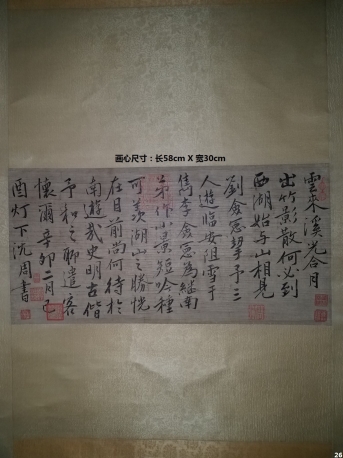 画心尺寸：长58cm X 宽30cm
雲來溪光合月
出竹影散何必到
西湖始与山相見
劉僉憲挈予三
人遊临安阻雪于
雋李僉憲為繼南
弟作小景短吟種
可羨湖山之勝恍
在目前尚何待於
南遊哉史明古偕
予和之聊遣客
懷爾辛卯二月己
酉灯下沈周書
26